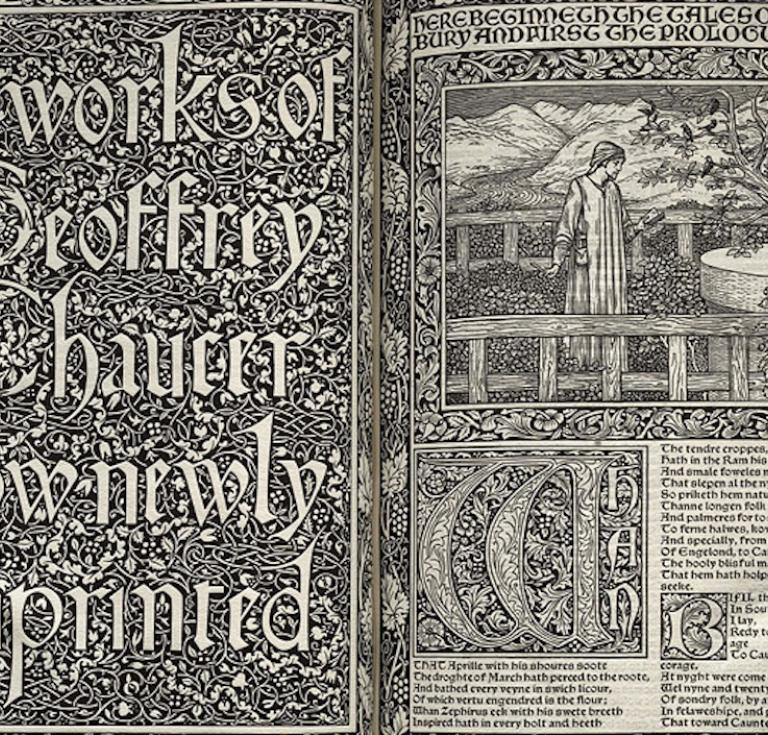 works of
Geoffrey
Chaucer
ow newly
printed
HERE BEGINNETH THE TALES O
BURY AND FIRST THE PROLOGU
WHAN
THAT Aprille with his shoures soote
The droghte of March hath perced to the roote,
And bathed every veyne in swich licour,
Of which vertu engendred is the flour;
Whan Zephirus eek with his swete breeth
Inspired hath in every holt and heeth
The tendre croppes,
Hath in the Ram his
And smale foweles m
That slepen al the ny
So priketh hem natu
Thanne longen folk
And palmeres for to
To ferne halwes, kow
And specially, from
Of Engelond, to Ca
The hooly blisful m
That hem hath holp
seeke.
BIFIL th
In Sou
I lay,
Redy to
age
To Cau
corage,
At nyght were come
Wel nyne and twenty
Of sondry folk, by a
In felaweshipe, and p
That toward Caunte